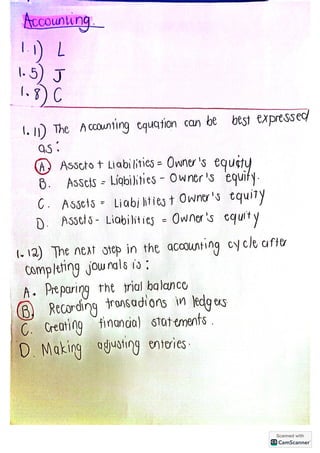 Accounting
1.1) L
1.5) J
1.8) C
1.11) The Accounting equation can be best expressed
as:
A. Assets + Liabilities = Owner's equity
B. Assets = Liabilities - Owner's equity.
C. Assets = Liabilities + Owner's equity
D. Assets - Liabilities = Owner's equity
1.12) The next step in the accounting cycle after
completing journals is:
A. Preparing the trial balance
B. Recording transactions in ledgers
C. Creating financial statements.
D. Making adjusting enteries.
Scanned with
CS CamScanner